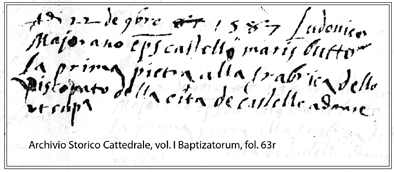 Adi 22 de 9bre 1587 Ludonico
Majorano eps castello maris buttor
la prima pietra alla frabica dello
Viscopato della cita de castello admare
ut supa
Archivio Storico Cattedrale, vol. I Baptizatorum, fol. 63r